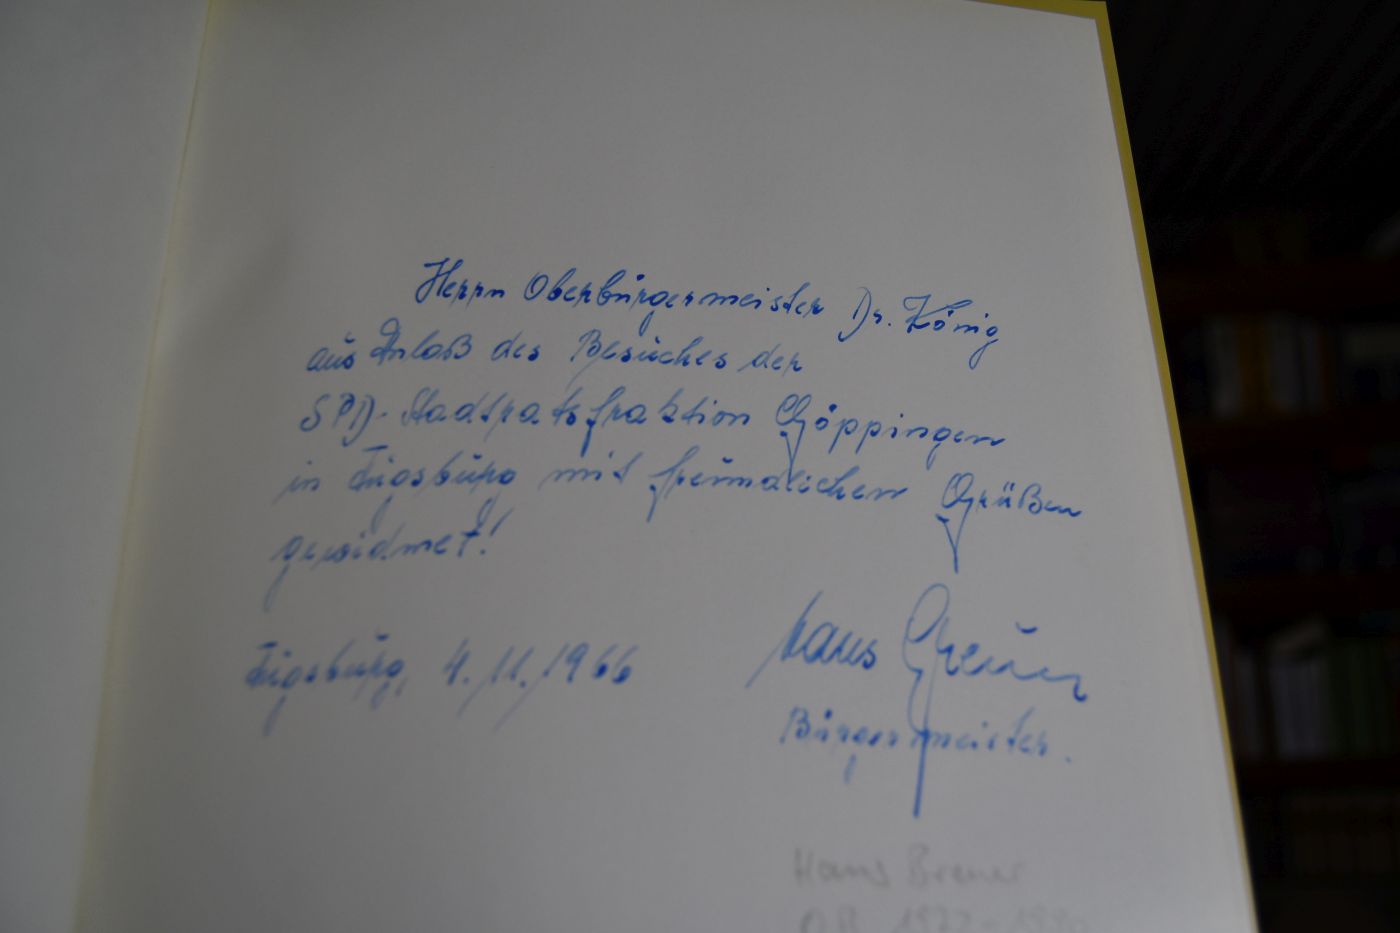 Herrn Oberbürgermeister Dr. König
aus Anlaß des Besuches der
SPD-Stadtratsfraktion Göppingen
in Augsburg mit freundlichen Grüßen
gewidmet!
Augsburg, 4.11.1966
Hans Breuer
Bürgermeister.
Hans Breuer
OB 1972-1990